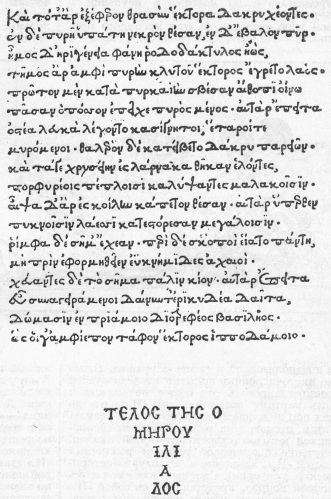 Καὶ τότ' ἄρ ἐξέφερον θρασὺν ἕκτορα δακρυχέοντες·
ἐν δὲ πυρῇ ὑπάτῃ νεκρὸν θέσαν, ἐν δ' ἔβαλον πῦρ·
ἦμος δ' ἠριγένεια φάνη ῥοδοδάκτυλος ἠώς,
τῆμος ἄρ ἀμφὶ πυρὴν κλυτοῦ ἕκτορος ἔγρετο λαός·
πρῶτον μὲν κατὰ πυρκαϊὴν σβέσαν αἴθοπι οἴνῳ
πᾶσαν ὁπόσσον ἐπέσχε πυρὸς μένος· αὐτὰρ ἔπειτα
ὀστέα λευκὰ λέγοντο κασίγνητοι, ἕταροί τε
μυρόμενοι· θαλερὸν δὲ κατείβετο δάκρυ παρειῶν·
καὶ τά γε χρυσείην ἐς λάρνακα θῆκαν ἑλόντες,
πορφυρέοις πέπλοισι καλύψαντες μαλακοῖσιν·
αἶψα δ' ἄρ ἐς κοίλην κάπετον θέσαν· αὐτὰρ ὕπερθεν
πυκνοῖσιν λάεσσι κατεστόρεσαν μεγάλοισιν·
ῥίμφα δὲ σῆμ' ἔχεαν· περὶ δὲ σκοποὶ εἵατο πάντη,
μὴ πρὶν ἐφορμηθεῖεν ἐϋκνήμιδες ἀχαιοί·
χεύαντες δὲ τὸ σῆμα πάλιν κίον· αὐτὰρ ἔπειτα
εὖ συναγειράμενοι δαίνυντ' ἐρικυδέα δαῖτα,
δώμασιν ἐν πριάμοιο διοτρεφέος βασιλῆος·
ὣς οἵ γ' ἀμφίεπον τάφον ἕκτορος ἱπποδάμοιο·
ΤΕΛΟΣ ΤΗΣ Ο
ΜΗΡΟΥ
ΙΛΙ
Α
ΔΟΣ